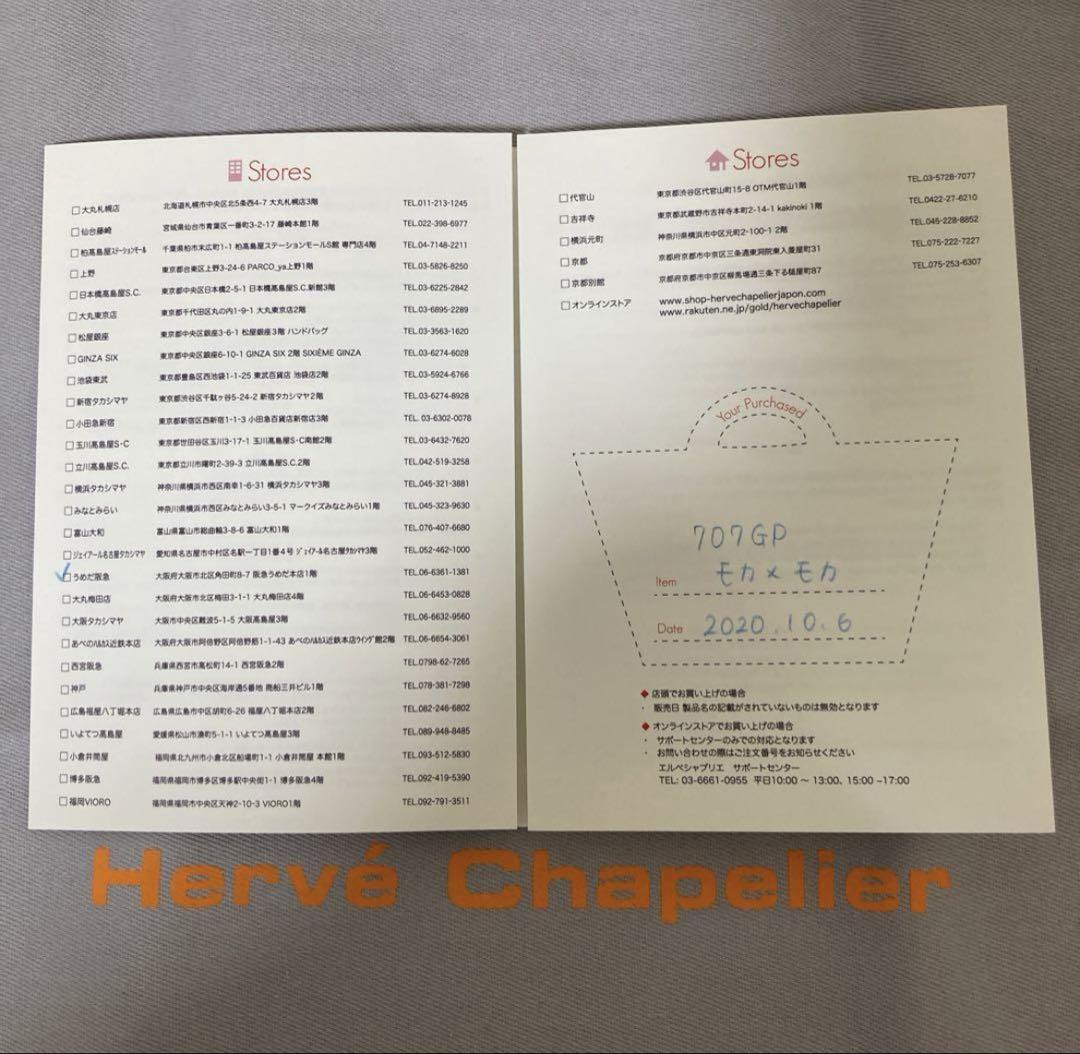 Stores
□大丸札幌店 北海道札幌市中央区北5条西4-7 大丸札幌店3階 TEL.011-213-1245
□仙台藤崎 宮城県仙台市青葉区一番町3-2-17 藤崎本館1階 TEL.022-398-6977
□柏高島屋ステーションモール 千葉県柏市末広町1-1 柏高島屋ステーションモールS館 専門店4階 TEL.04-7148-2211
□上野 東京都台東区上野3-24-6 PARCO_ya上野1階 TEL.03-5826-8250
□日本橋高島屋S.C. 東京都中央区日本橋2-5-1 日本橋高島屋S.C.新館3階 TEL.03-6225-2842
□大丸東京店 東京都千代田区丸の内1-9-1 大丸東京店2階 TEL.03-6895-2289
□松屋銀座 東京都中央区銀座3-6-1 松屋銀座3階 ハンドバッグ TEL.03-3563-1620
□GINZA SIX 東京都中央区銀座6-10-1 GINZA SIX 2階 SIXIÈME GINZA TEL.03-6274-6028
□池袋東武 東京都豊島区西池袋1-1-25 東武百貨店 池袋店2階 TEL.03-5924-6766
□新宿タカシマヤ 東京都渋谷区千駄ヶ谷5-24-2 新宿タカシマヤ2階 TEL.03-6274-8928
□小田急新宿 東京都新宿区西新宿1-1-3 小田急百貨店新宿店3階 TEL. 03-6302-0078
□玉川高島屋S・C 東京都世田谷区玉川3-17-1 玉川高島屋S・C南館2階 TEL.03-6432-7620
□立川高島屋S.C. 東京都立川市曙町2-39-3 立川高島屋S.C.2階 TEL.042-519-3258
□横浜タカシマヤ 神奈川県横浜市西区南幸1-6-31 横浜タカシマヤ3階 TEL.045-321-3881
□みなとみらい 神奈川県横浜市西区みなとみらい3-5-1 マークイズみなとみらい1階 TEL.045-323-9630
□富山大和 富山県富山市総曲輪3-8-6 富山大和1階 TEL.076-407-6680
□ジェイアール名古屋タカシマヤ 愛知県名古屋市中村区名駅一丁目1番4号 ジェイアール名古屋タカシマヤ3階 TEL.052-462-1000
□うめだ阪急 大阪府大阪市北区角田町8-7 阪急うめだ本店1階 TEL.06-6361-1381
□大丸梅田店 大阪府大阪市北区梅田3-1-1 大丸梅田店4階 TEL.06-6453-0828
□大阪タカシマヤ 大阪市中央区難波5-1-5 大阪高島屋3階 TEL.06-6632-9560
□あべのハルカス近鉄本店 大阪府大阪市阿倍野区阿倍野筋1-1-43 あべのハルカス近鉄本店ウイング館2階 TEL.06-6654-3061
□西宮阪急 兵庫県西宮市高松町14-1 西宮阪急2階 TEL.0798-62-7265
□神戸 兵庫県神戸市中央区海岸通5番地 商船三井ビル1階 TEL.078-381-7298
□広島福屋八丁堀本店 広島県広島市中区胡町6-26 福屋八丁堀本店2階 TEL.082-246-6802
□いよてつ高島屋 愛媛県松山市湊町5-1-1 いよてつ高島屋3階 TEL.089-948-8485
□小倉井筒屋 福岡県北九州市小倉北区船場町1-1 小倉井筒屋 本館1階 TEL.093-512-5830
□博多阪急 福岡県福岡市博多区博多駅中央街1-1 博多阪急4階 TEL.092-419-5390
□福岡VIORO 福岡県福岡市中央区天神2-10-3 VIORO1階 TEL.092-791-3511
Stores
□代官山 東京都渋谷区代官山町15-8 OTM代官山1階 TEL.03-5728-7077
□吉祥寺 東京都武蔵野市吉祥寺本町2-14-1 kakinoki 1階 TEL.0422-27-6210
□横浜元町 神奈川県横浜市中区元町2-100-1 2階 TEL.045-228-8852
□京都 京都府京都市中京区三条通東洞院東入菱屋町31 TEL.075-222-7227
□京都別館 京都府京都市中京区柳馬場通三条下る槌屋町87 TEL.075-253-6307
□オンラインストア www.shop-hervechapelierjapon.com
www.rakuten.ne.jp/gold/hervechapelier
Your Purchased
707GP
Item モカ×モカ
Date 2020.10.6
◆店頭でお買い上げの場合
・ 販売日 製品名の記載がされていないものは無効となります
◆オンラインストアでお買い上げの場合
・ サポートセンターのみでの対応となります
・ お問い合わせの際はご注文番号をお知らせください
エルベシャプリエ サポートセンター
TEL: 03-6661-0955 平日10:00 〜 13:00、15:00 ~17:00
Hervé Chapelier